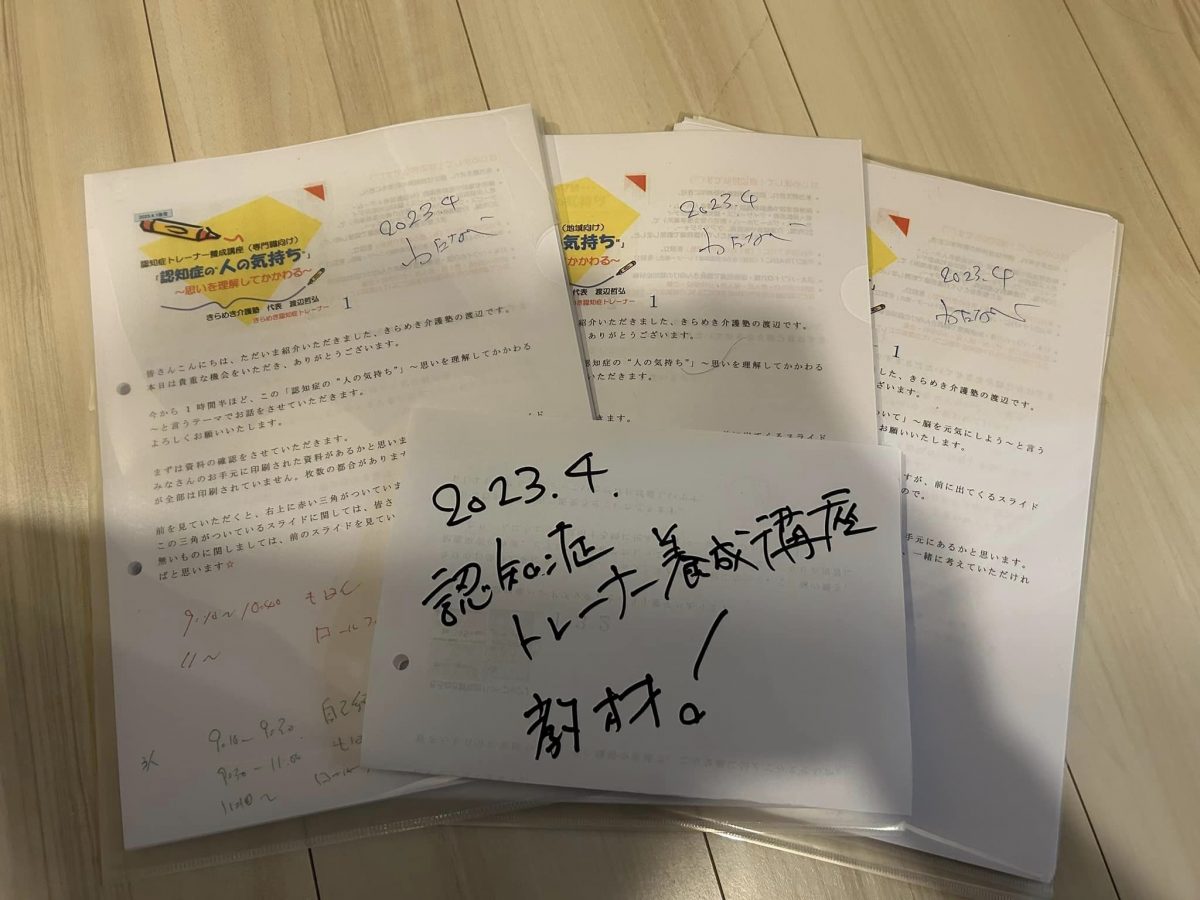 認知症トレーナー養成講座(専門職向け)
「認知症の"人の気持ち"」
～思いを理解してかかわる～
きらめき介護塾 代表 渡辺哲弘
きらめき認知症トレーナー
1
2023.4
皆さんこんにちは、ただいま紹介いただきました、きらめき介護塾の渡辺です。
本日は貴重な機会をいただき、ありがとうございます。
今から1時間半ほど、この「認知症の"人の気持ち"」～思いを理解してかかわる
～と言うテーマでお話をさせていただきます。
よろしくお願いいたします。
まずは資料の確認をさせていただきます。
みなさんのお手元に印刷された資料があるかと思いま
が全部は印刷されていません。枚数の都合がありま
前を見ていただくと、右上に赤い三角がついていま
この三角がついているスライドに関しては、皆さ
無いものに関しましては、前のスライドを見てい
ばと思います☆
9:10～10:40
11～
9:30-11:00
(地域向け)
気持ち"」
かかわる～
きらめき認知症トレーナー
1
2023.4
紹介いただきました、きらめき介護塾の渡辺です。
ありがとうございます。
認知症の"人の気持ち"」～思いを理解してかかわる
いただきます。
きます。
に出てくるスライド
2023.4
1
した、きらめき介護塾の渡辺です。
ざいます。
ついて」～脳を元気にしよう～と言う
お願いいたします。
すが、前に出てくるスライド
ので。
手元にあるかと思います。
、一緒に考えていただけれ
2023.4.
認知症
トレーナー養成講座
教材。!